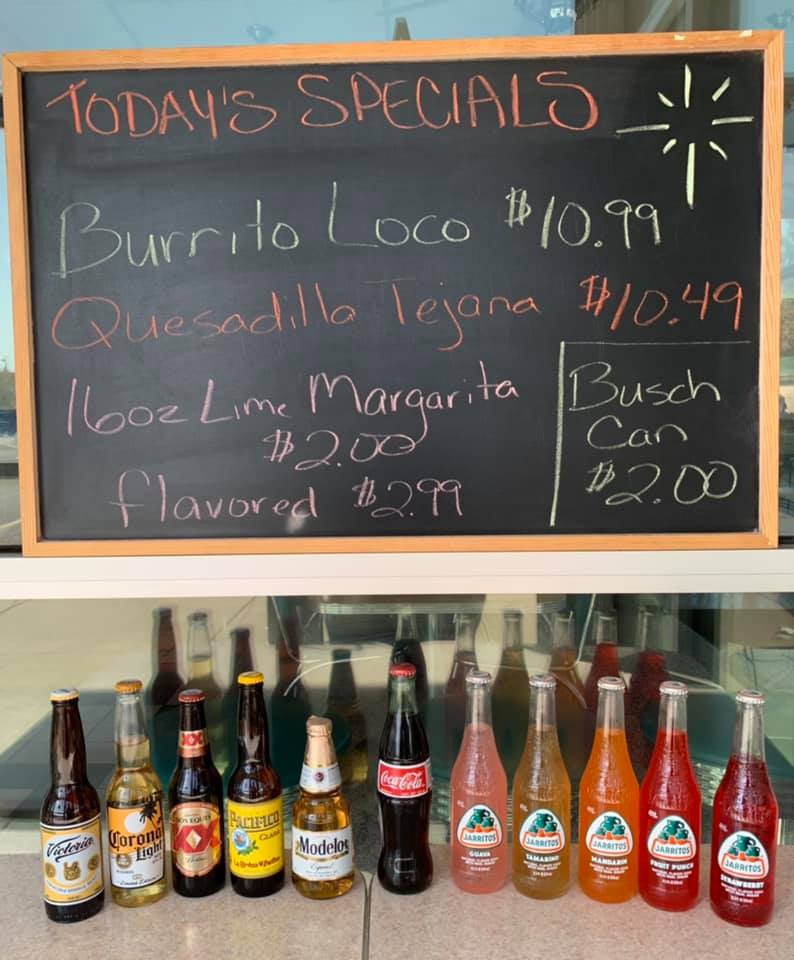 TODAY'S SPECIALS
Burrito Loco $10.99
Quesadilla Tejana $10.49
16oz Lime Margarita
$2.00
flavored $2.99
Busch
Can
$2.00
Victoria
Corona
Light
DOS EQUIS
XX
PACIFICO
CLARA
Modelo
Especial
Coca-Cola
JARRITOS
GUAVA
JARRITOS
TAMARIND
JARRITOS
MANDARIN
JARRITOS
FRUIT PUNCH
JARRITOS
STRAWBERRY